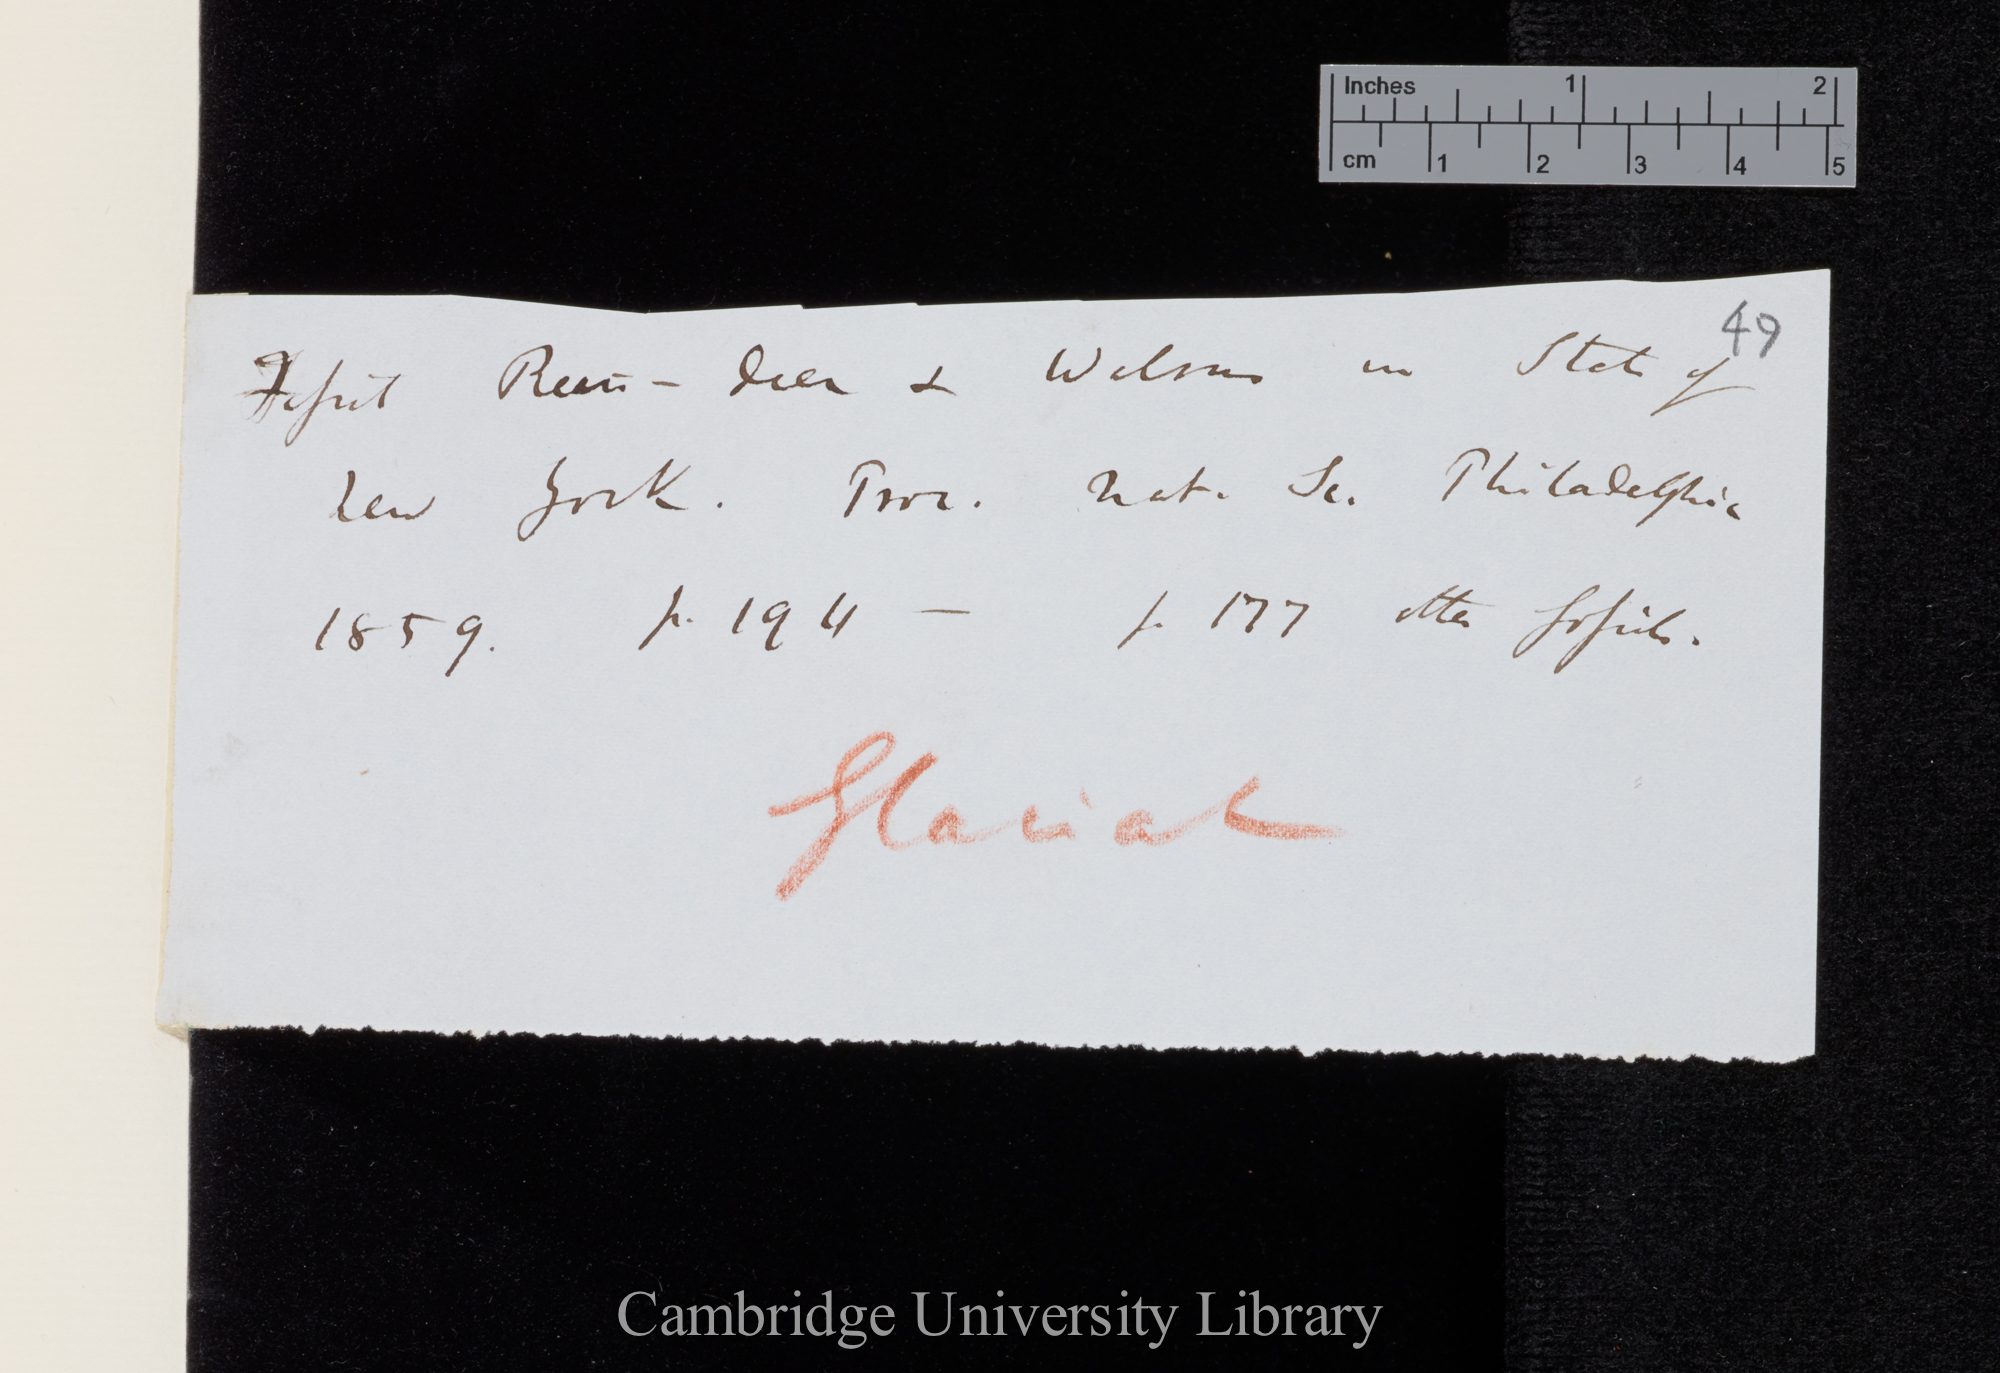 Inches 1 2
cm 1 2 3 4 5
49
Fossil Rein-deer & Walrus in State of
New York. Proc. Nat. Sc. Philadelphia
1859. p. 194 — p. 177 other fossils.
Glacial
Cambridge University Library